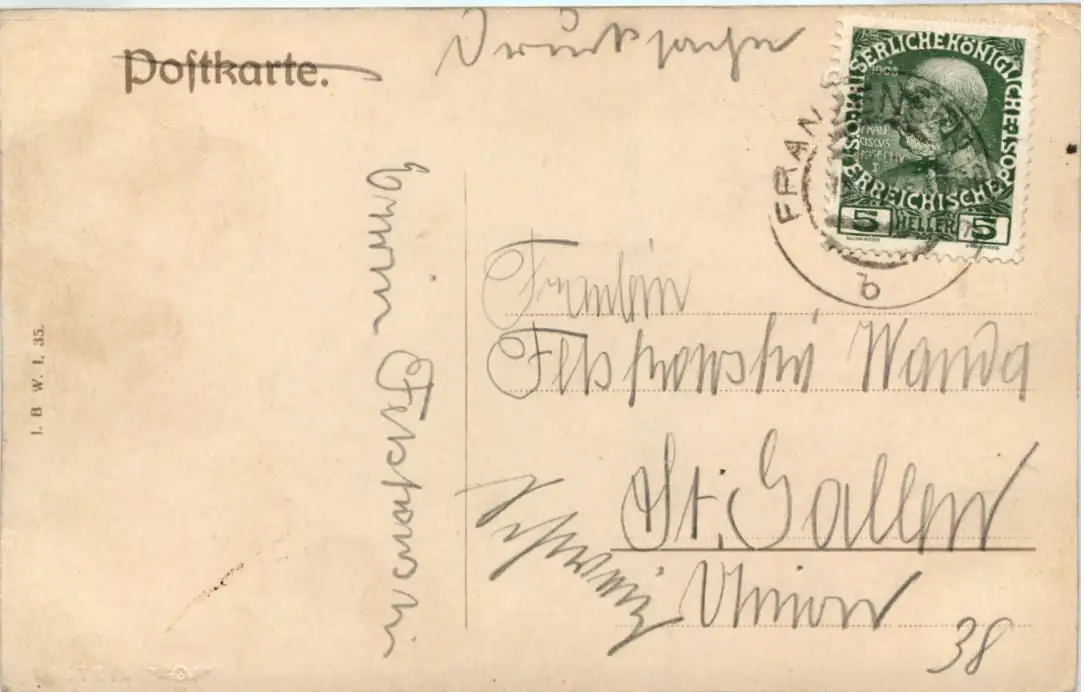 Postkarte.
Drucksache
KAISERLICHE KÖNIGLICHE
ÖSTERREICHISCHE POST
1908
FRAN
CISCUS
JOSEPHUS
I
5 HELLER 5
FRANZENS
b
Fräulein
Wanda
St. Gallen
Schweiz
Union
38
I. B W. I. 35.